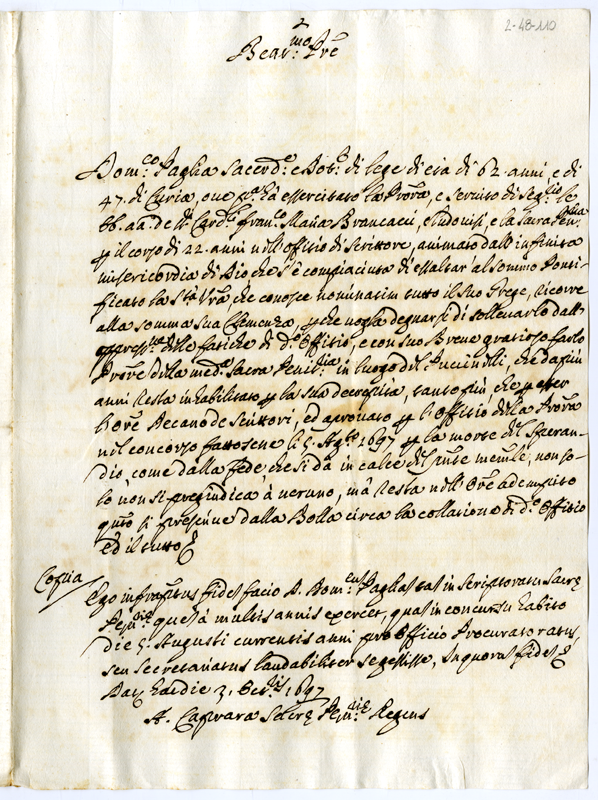 2-48-110
Beat.mo Prē
Dom.co Paglia Sacerd.e e Dot.e di lege di eta di 62 anni, e di
47. di Curia, oue essercitato la Procra, e seruito di Seg.rio le
bb. aa. de Card.li Fran.co Maria Brancacci, e Ludouisi, e la Sacra Pen.ria
p il corso di 22. anni nell'Offitio di Scrittore, animato dall'infinita
misericordia di Dio che s'è compiaciuta di essaltar' al Sommo Ponti-
ficato la Stà Vrā che conosce nominatim tutto il suo Grege, ricorre
alla somma sua Clemenza, p che uoglia degnarsi di solleuarlo dall'
delle fatiche di d.o Offitio, e con suo Breue gratioso farlo
Prōre della med.a Sacra Penit.ria in luogo del Puccinelli che da più
anni resta inhabilitato p la sua decrepità, tanto più che p esser
l'Ore Decano de Scrittori, ed aprouato p l'Offitio della Procra
nel concorso fattosene li 5. Ag.to 1697 p la morte del Speran-
dio, come dalla fede che si dà in calce del pnte memle, non so-
lo non si pregiudica à neruno, mà resta nell'Ore adempito
qnto si prescriue dalla Bolla circa la collatione di d.o Offitio
ed il tutto
Copia
Ego infraptus fidem facio D. Dom.cus Paglia in scriptoratu Sacrę
Pen.rię que à multis annis exercet, quam in concursu habito
die 5. Augusti currentis anni pro Officio Procuratoratus,
seu Secretariatus laudabiliter se gessisse, In quorum fidem
Dat. hac die 3. 1697
A. Caprara Sacrę Pen.rię Regens